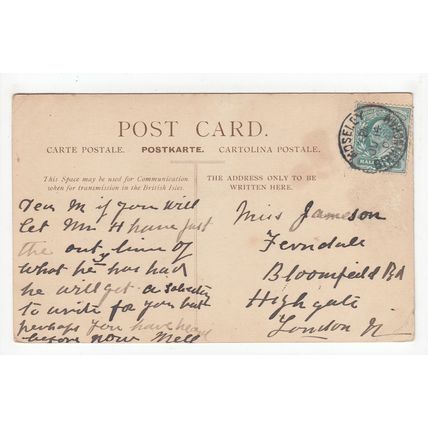 POST CARD.
CARTE POSTALE. POSTKARTE. CARTOLINA POSTALE.
This Space may be used for Communication
when for transmission in the British Isles.
THE ADDRESS ONLY TO BE
WRITTEN HERE.
Dear M if you will
let Mr H have just
the out line of
what he has had
he will get a solicitor
to write for you but
perhaps you have heard
before now Nell
Miss Jameson
Ferndale
Bloomfield Rd
Highgate
London N
MOSELEY
HALF